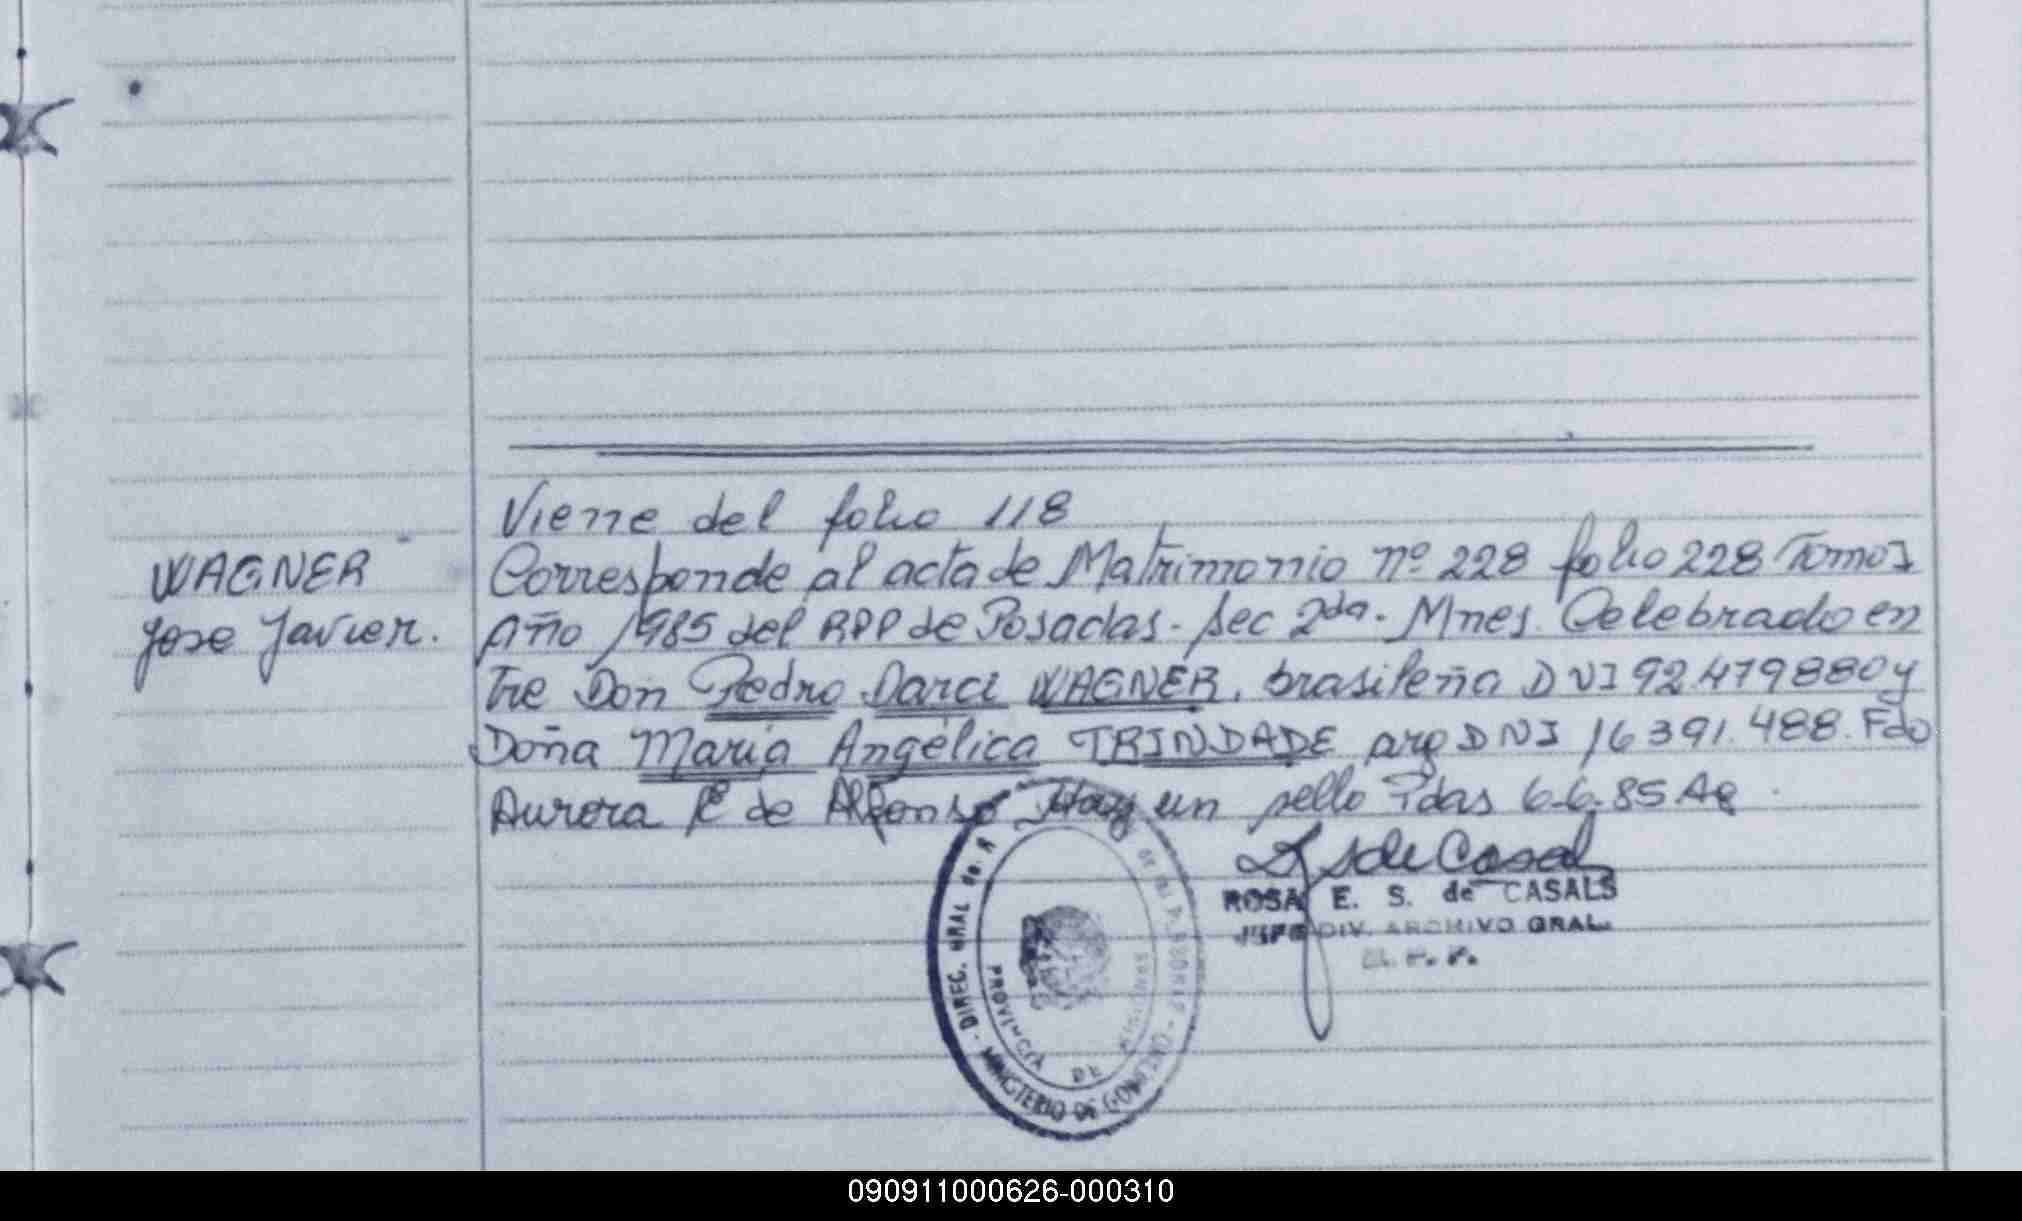 Viene del folio 118
WAGNER
Jose Javier.
Corresponde al acta de Matrimonio nº 228 folio 228 Tomo I
Año 1985 del RPP de Posadas. Sec 2da. Mnes. Celebrado en
tre Don Pedro Darci WAGNER, brasileño DNI 92.479880 y
Doña María Angélica TRINDADE arg DNI 16391.488. Fdo
Aurora de Alfonso Hay un sello Pdas 6.6.85
de Casals
ROSA E. S. de CASALS
JEFE DIV. ARCHIVO GRAL.
R. P. P.
DIREC. GRAL DE - MINISTERIO DE GOBIERNO
PROVINCIA DE MISIONES
090911000626-000310